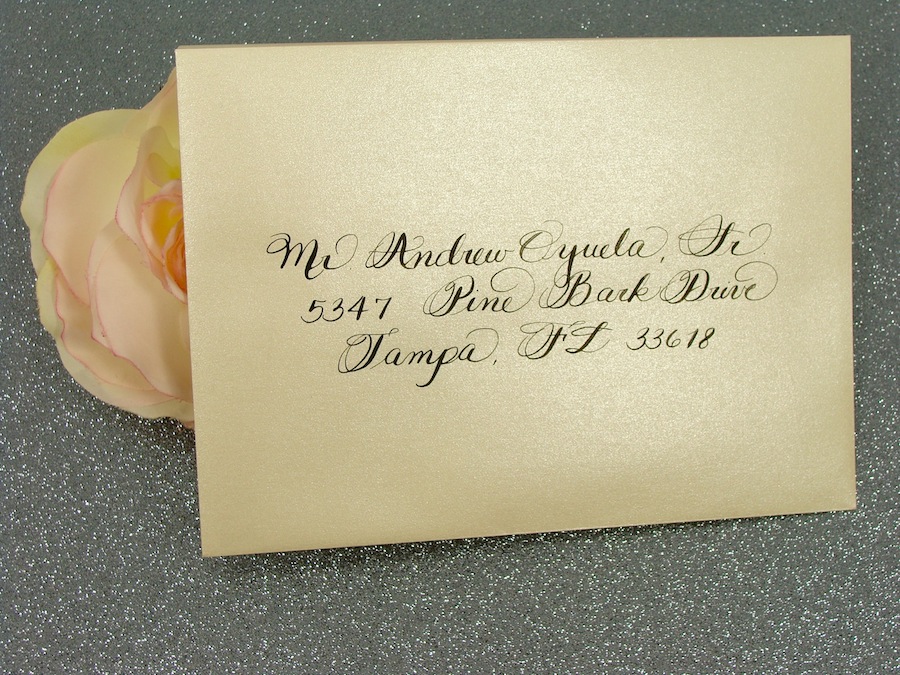 Mr. Andrew Oyuela, Sr
5347 Pine Bark Drive
Tampa, FL 33618